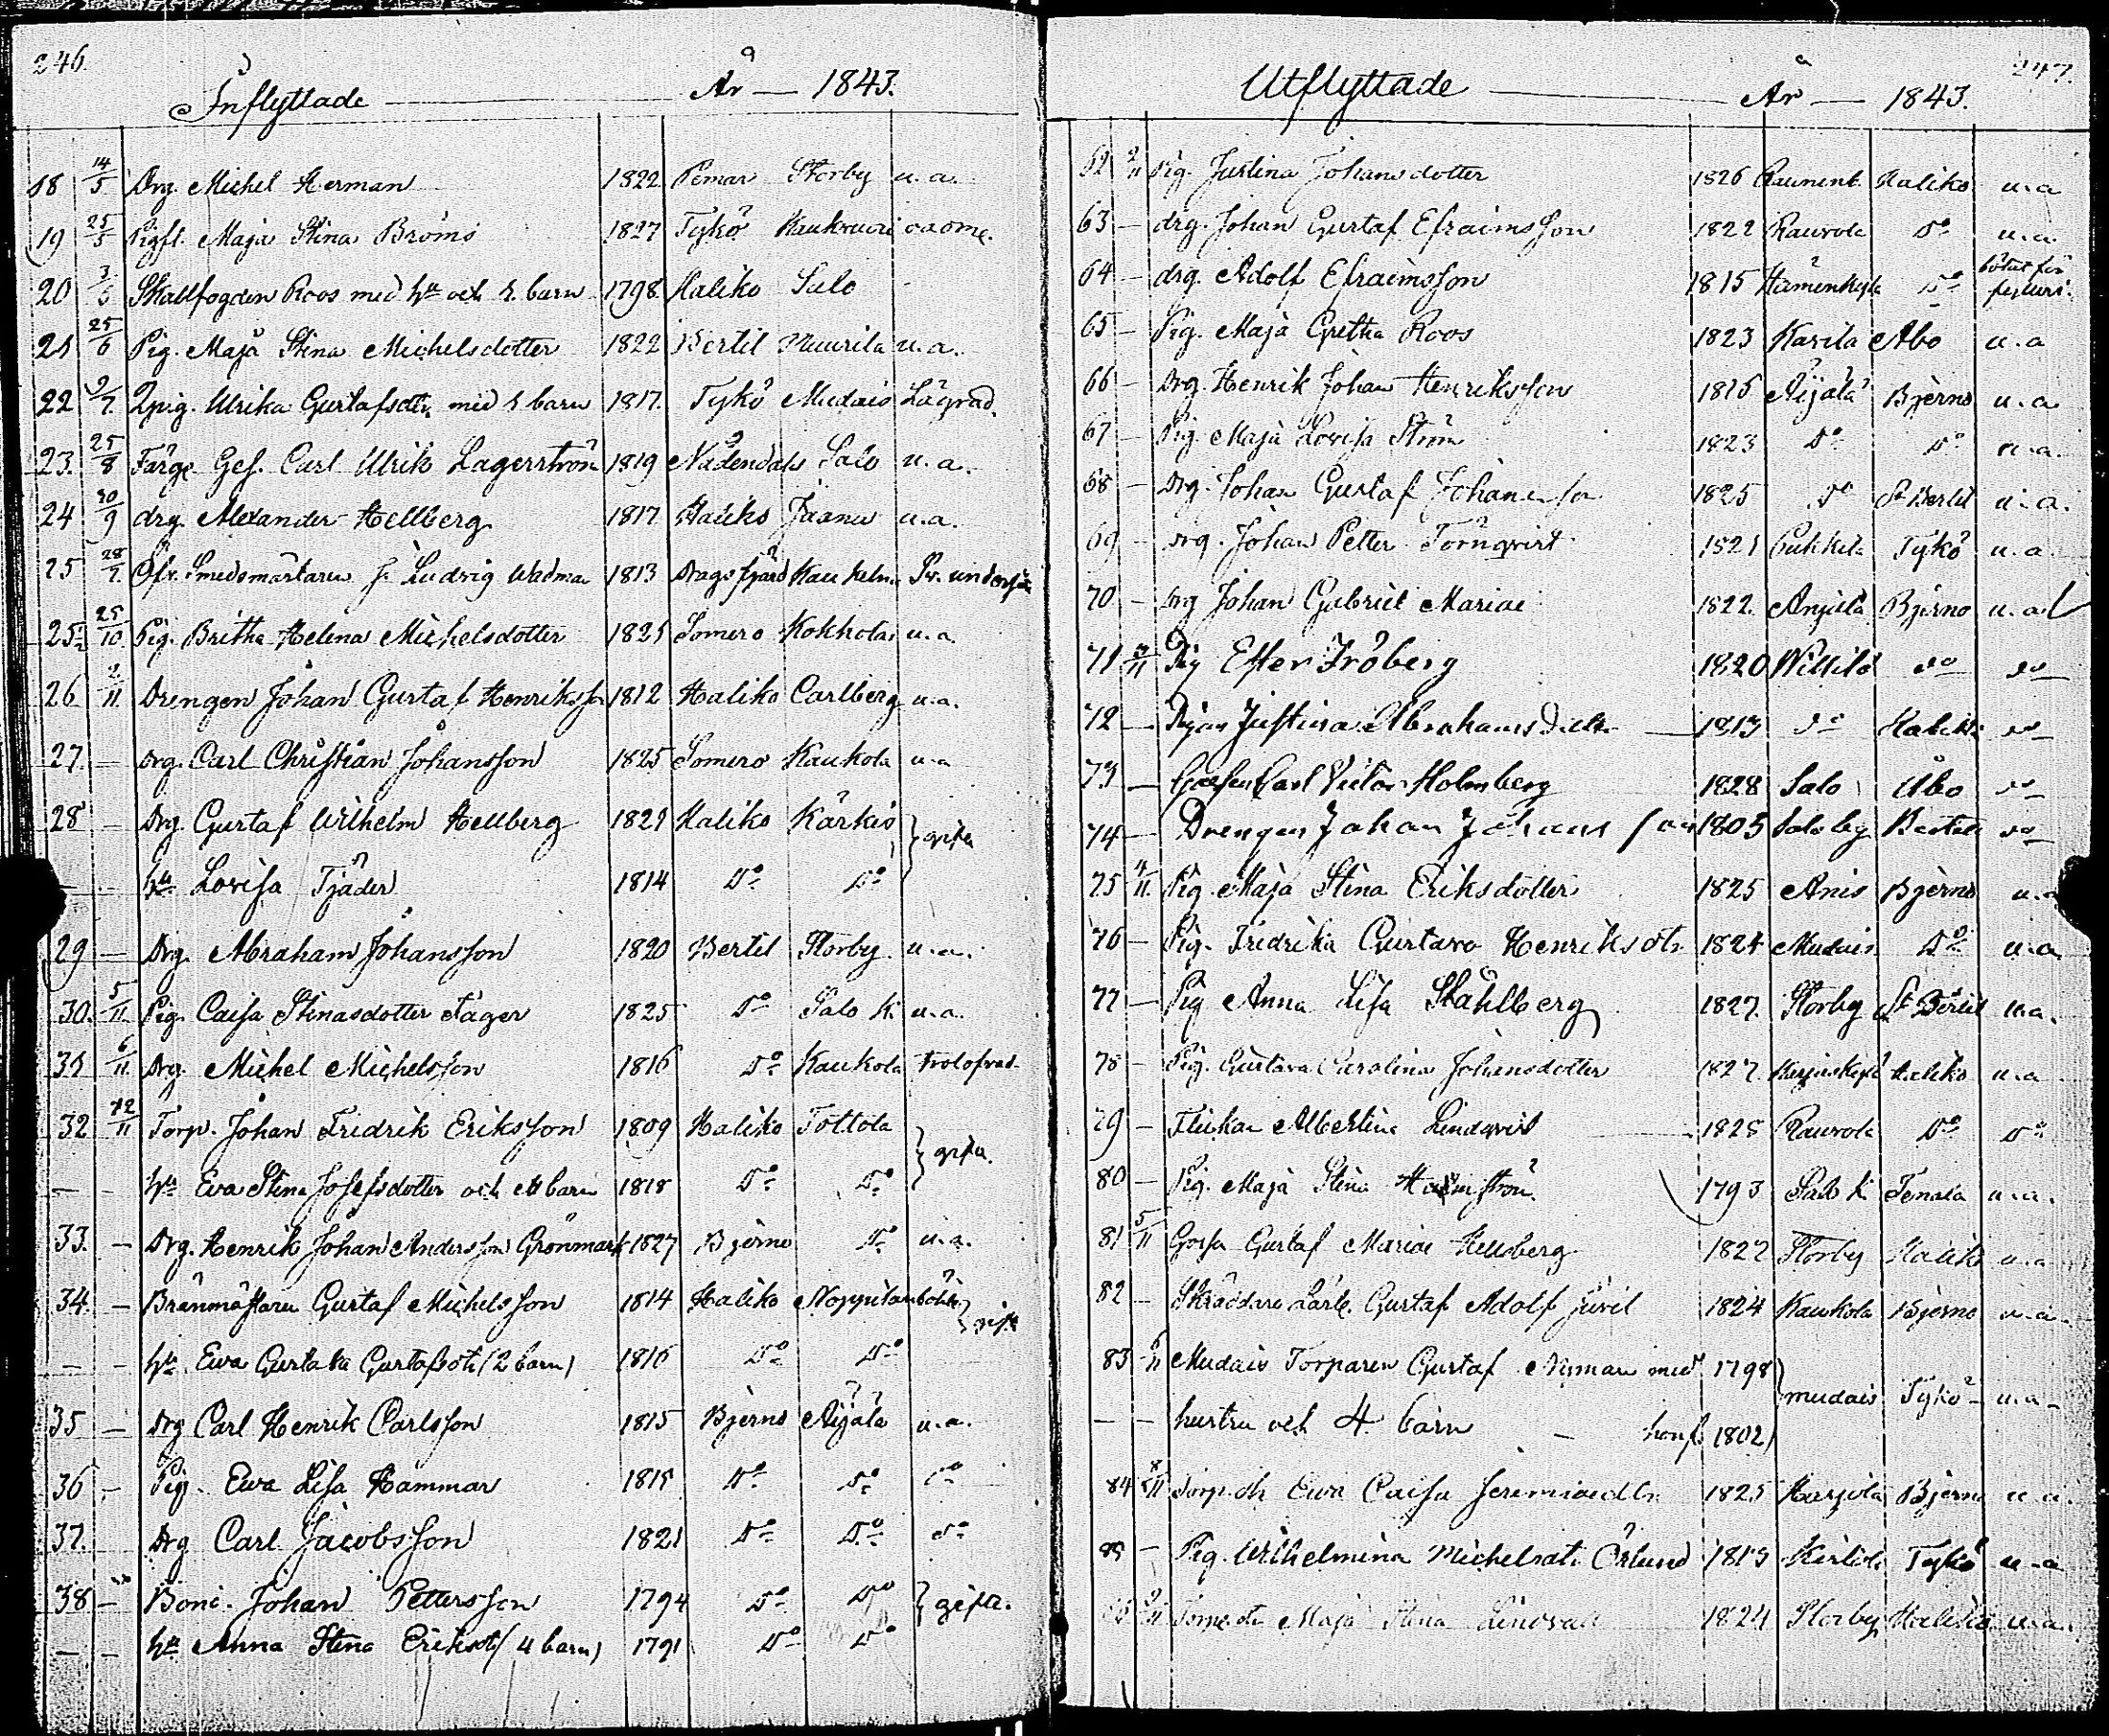 246.
Inflyttade År 1843.
18 14/5 Drg. Michel Herman 1822 Pemar Storby u.a.
19 25/5 Pigfl. Maja Stina Broms 1827 Tykö
20 3/6 Stallfogden Roos med hu och 1. barn 1798 Haliko Salo
21 25/6 Pig. Maja Stina Michelsdotter 1822 Bertil Muurila u.a.
22 9/7 Qpig. Ulrika Gustafsdtr. med 1 barn 1817. Tykö Mudais Lägrad.
23. 25/8 Färge. Ges. Carl Ulrik Lagerström 1819 Nådendals Salo u.a.
24 30/9 drg. Alexander Hellberg 1817 Haliko Joanu u.a.
25 28/7 Smedsmästaren Ludvig Wadman 1813 Dragsfjärd
25 25/10 Pig. Britha Helena Michelsdotter 1821 Somero Kokhola u.a.
26 2/11 Drengen Johan Gustaf Henriksson 1812 Haliko Carlberg u.a.
27. — Drg. Carl Christian Johansson 1825 Somero Kaukola u.a
28 — Drg. Gustaf Wilhelm Hellberg 1821 Haliko Kärkis } gifta
— — hu Lovisa Tjäder 1814 Do Do
29 — Drg. Abraham Johansson 1820 Bertil Storby. u.a.
30. 5/11 Pig. Caisa Stinasdotter Fager 1825 Do Salo K. u.a.
31 6/11 Drg. Michel Michelsson 1816 Do Kaukola trolofvad
32 12/11 Torp. Johan Fridrik Eriksson 1809 Haliko Tottola } gifta.
— — hu Eva Stina Josefsdotter och ett barn 1818 Do Do
33. — Drg. Henrik Johan Andersson Grönmark 1827 Bjerno Do u.a.
34. — Brännmästaren Gustaf Michelsson 1814 Haliko } gifta
— — hu. Ewa Gustava Gustafsdtr (2 barn) 1816 Do Do
35 — Drg Carl Henrik Carlsson 1815 Bjerno Äijälä u.a.
36 — Pig. Ewa Lisa Hammar 1815 Do Do Do
37. Drg Carl Jacobsson 1821 Do Do Do
38 — Bonic. Johan Pettersson 1794 Do Do } gifta.
— — hu Anna Stina Eriksdt (4 barn) 1791 Do Do
247.
Utflyttade År 1843.
62 2/11 Pig. Justina Johansdotter 1826 Haliko u.a
63 — drg. Johan Gustaf Efraimsson 1822 Rauvola Do u.a.
64 — drg. Adolf Efraimsson 1815 Hämenkylä Do bötat för
65 — Pig. Maja Gretha Roos 1823 Karila Åbo u.a
66 — Drg. Henrik Johan Henriksson 1816 Äijälä Bjerno u.a
67 — Pig. Maja Lovisa Ström 1823 Do Do u.a.
68 — Drg. Johan Gustaf Johansson 1825 Do St Bertil u.a.
69 — Drg. Johan Petter Törnqvist 1821 Pukkila Tykö u.a.
70 — Drg Johan Gabriel Mariae 1822. Anjala Bjerno u.a
71 3/11 Pig Ester Fröberg 1820 Willilä do do
72 — Pigan Justina Abrahams Dotter — 1813 do Haliko do
73 — Gossen Carl Victor Holmberg 1828 Salo Åbo do
74 — Drengen Johan Johansson 1805 Salo by Bertil do
75 4/11 Pig. Maja Stina Eriksdotter 1825 Anis Bjerno u.a
76 — Pig. Fridrika Gustava Henriksdtr 1824 Mudais Do u.a
77 — Pig Anna Lisa Ståhlberg 1827. Storby St Bertil u.a.
78 — Pig. Gustava Carolina Johansdotter 1827. Haliko u.a
79 — Flickan Albertina Lindqvist 1828 Rauvola Do Do
80 — Pig. Maja Stina Holmström 1793 Salo K Tenala u.a.
81 5/11 Gosse Gustaf Mariae Hellsberg 1827 Storby Haliko u.a
82 — Skräddare Lärl. Gustaf Adolf Juvel 1824 Kaukola Bjerno u.a.
83 6/11 Mudais Torparen Gustaf Nyman med 1798 } mudais Tykö u.a
— — hustru och 4. barn — hon f 1802
84 8/11 Torp.dtr Ewa Caisa Jeremiaedtr 1825 Harjola Bjerno u.a.
85 — Pig. Wilhelmina Michelsdtr Örlund 1815 Tykö u.a
Maja Stina 1824 Storby Haliko u.a.